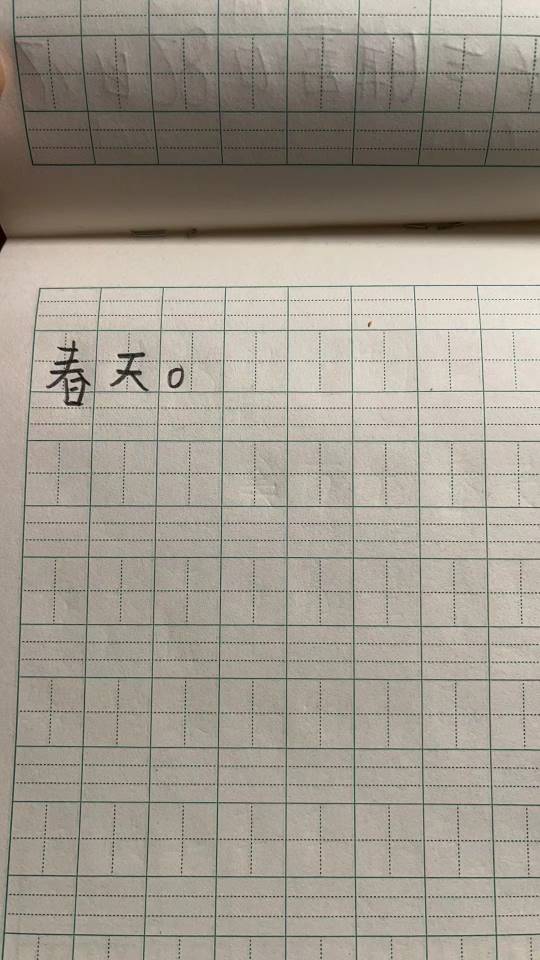 春天。